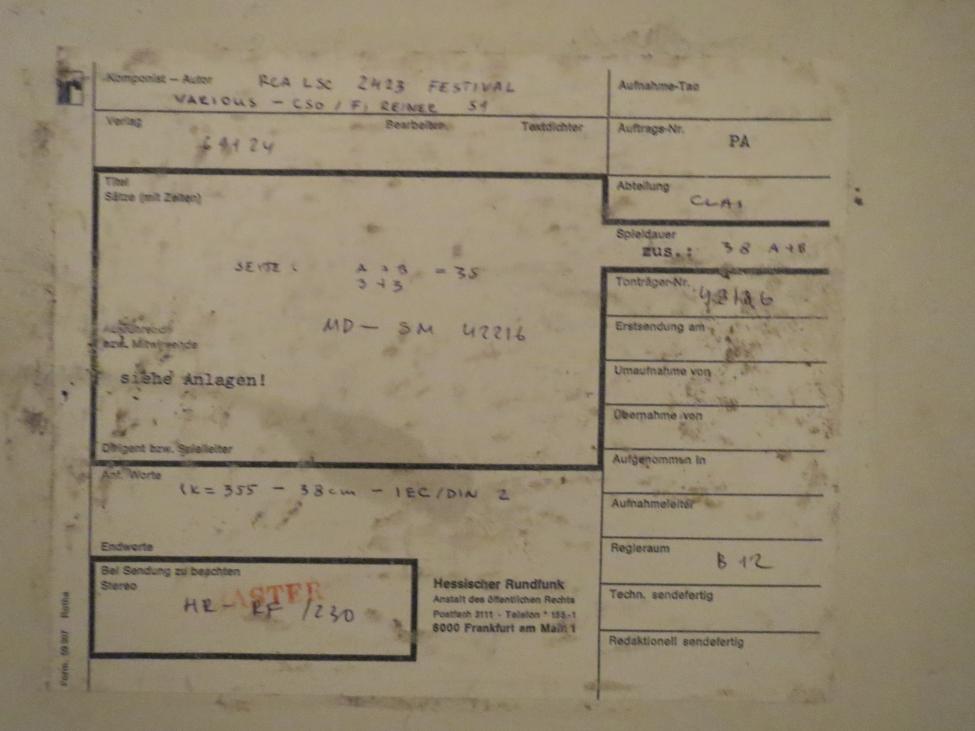 Komponist – Autor RCA LSC 2423 FESTIVAL
VARIOUS – CSO / F. REINER 59
Verlag Bearbeiter Textdichter
Titel
Sätze (mit Zeiten)
SEITE : A + B = 35
3 + 3
MD – SM 42216
Ausführende
bzw. Mitwirkende
siehe Anlagen!
Dirigent bzw. Spielleiter
Anf. Worte
LK = 355 – 38 cm – IEC/DIN 2
Endworte
Bei Sendung zu beachten
Stereo
HR – RF /230
Hessischer Rundfunk
Anstalt des öffentlichen Rechts
Postfach 3111 - Telefon * 155-1
6000 Frankfurt am Main 1
Aufnahme-Tag
Auftrags-Nr.
PA
Abteilung
Spieldauer
zus.: 38 A+B
Tonträger-Nr.
Erstsendung am
Umaufnahme von
Übernahme von
Aufgenommen in
Aufnahmeleiter
Regieraum
B 12
Techn. sendefertig
Redaktionell sendefertig